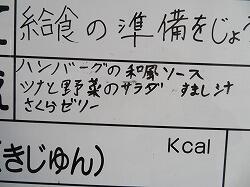 給食の準備をじょ
ハンバーグの和風ソース
ツナと野菜のサラダ　すまし汁
さくらゼリー
Kcal
きじゅん）